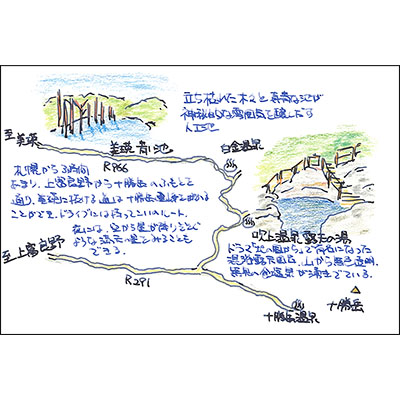 立ち枯れた木々と真青な池が
神秘的な雰囲気を醸し出す
人工池
至美瑛
美瑛青い池
白金温泉
R966
札幌から3時間
あまり、上富良野から十勝岳のふもとを
通り、美瑛に抜ける道は十勝岳連峰を眺める
ことができ、ドライブにはもってこいのルート。
夜には、空から星が降りそそぐ
ような満天の星をみることも
できる。
吹上温泉 露天の湯
ドラマ「北の国から」で有名になった
混浴露天風呂、山から無色透明
の温泉が湧きでている。
至上富良野
R291
十勝岳温泉
十勝岳